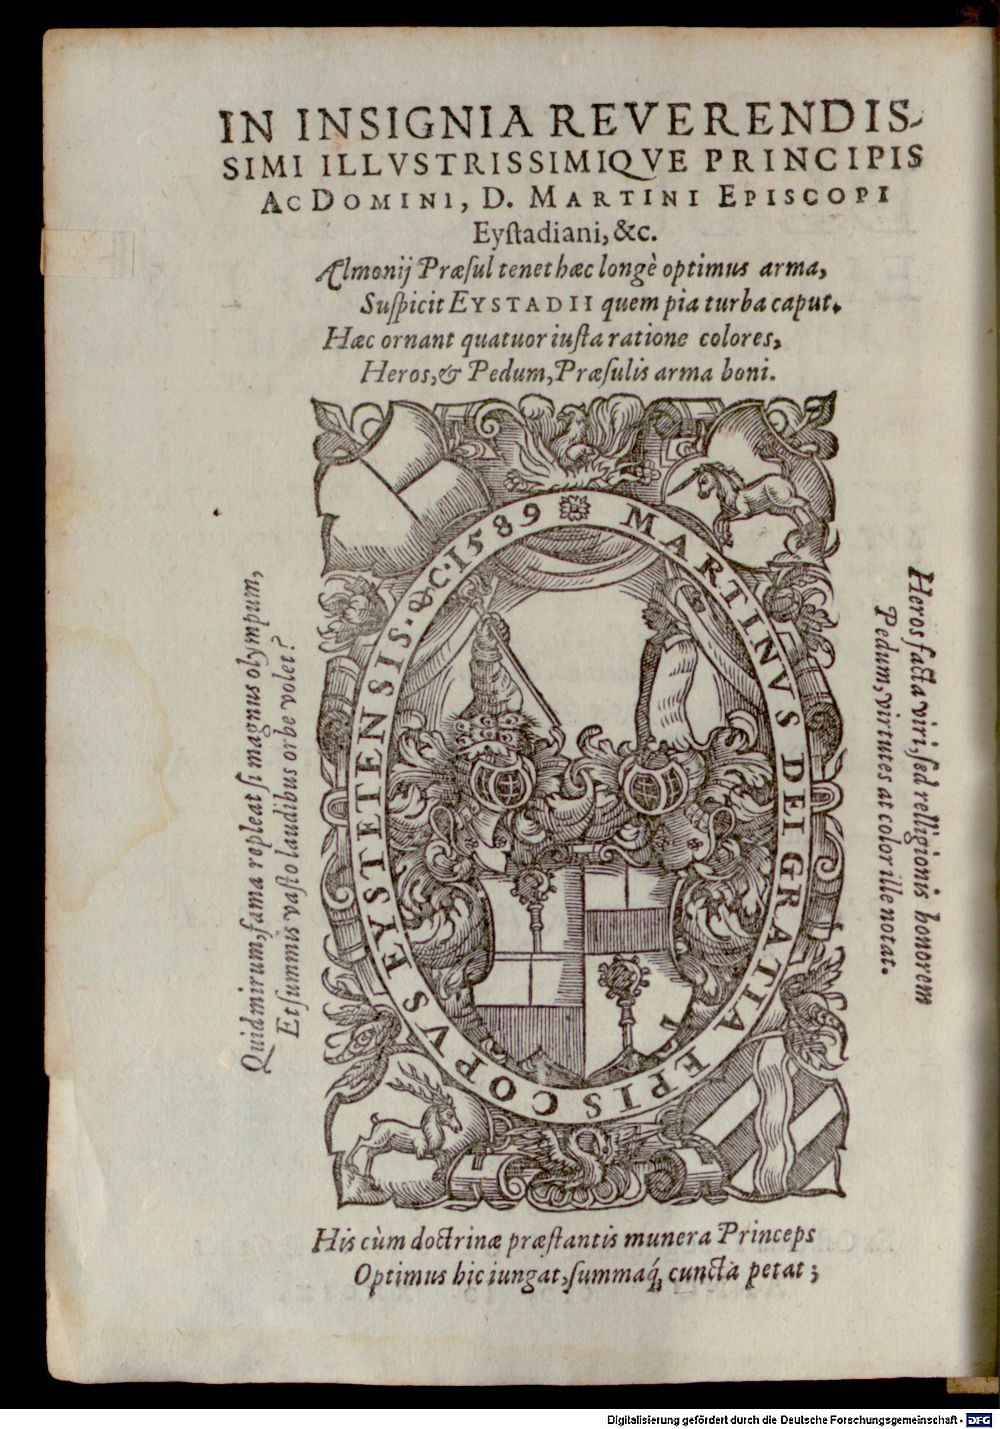 IN INSIGNIA REVERENDIS-
SIMI ILLVSTRISSIMIQVE PRINCIPIS
AC DOMINI, D. MARTINI EPISCOPI
Eyſtadiani, &c.
Ælmonij Præſul tenet hæc longè optimus arma,
Suſpicit EYSTADII quem pia turba caput.
Hæc ornant quatuor iuſta ratione colores,
Heros, & Pedum, Præſulis arma boni.
MARTINVS DEI GRATIA EPISCOPVS EYSTETENSIS. &C. 1589
Heros facta viri, ſed relligionis honorem
Pedum, virtutes at color ille notat.
His cùm doctrinæ præſtantis munera Princeps
Optimus hic iungat, ſummaq́; cuncta petat;
Quid mirum, fama repleat ſi magnus olympum,
Et ſummis vaſto laudibus orbe volet?
Digitalisierung gefördert durch die Deutsche Forschungsgemeinschaft - DFG